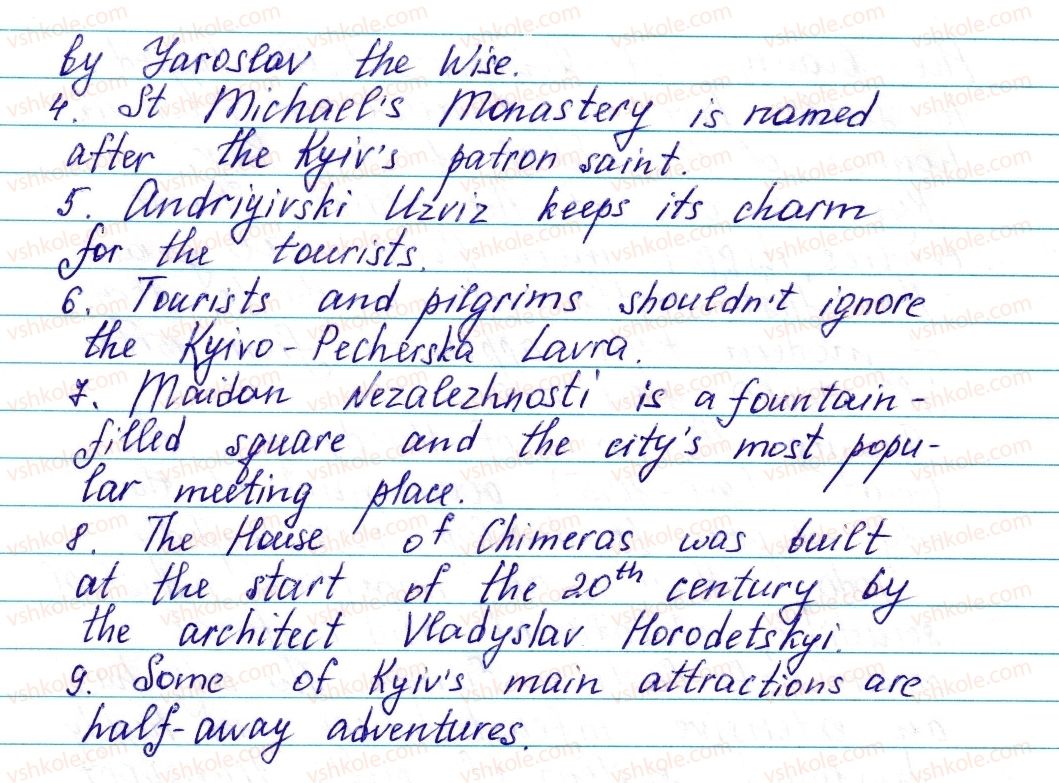 by Yaroslav the Wise.
4. St Michael's Monastery is named
after the Kyiv's patron saint.
5. Andriyivski Uzviz keeps its charm
for the tourists.
6. Tourists and pilgrims shouldn't ignore
the Kyivo-Pecherska Lavra.
7. Maidan Nezalezhnosti is a fountain-
filled square and the city's most popu-
lar meeting place.
8. The House of Chimeras was built
at the start of the 20th century by
the architect Vladyslav Horodetskyi.
9. Some of Kyiv's main attractions are
half-away adventures.